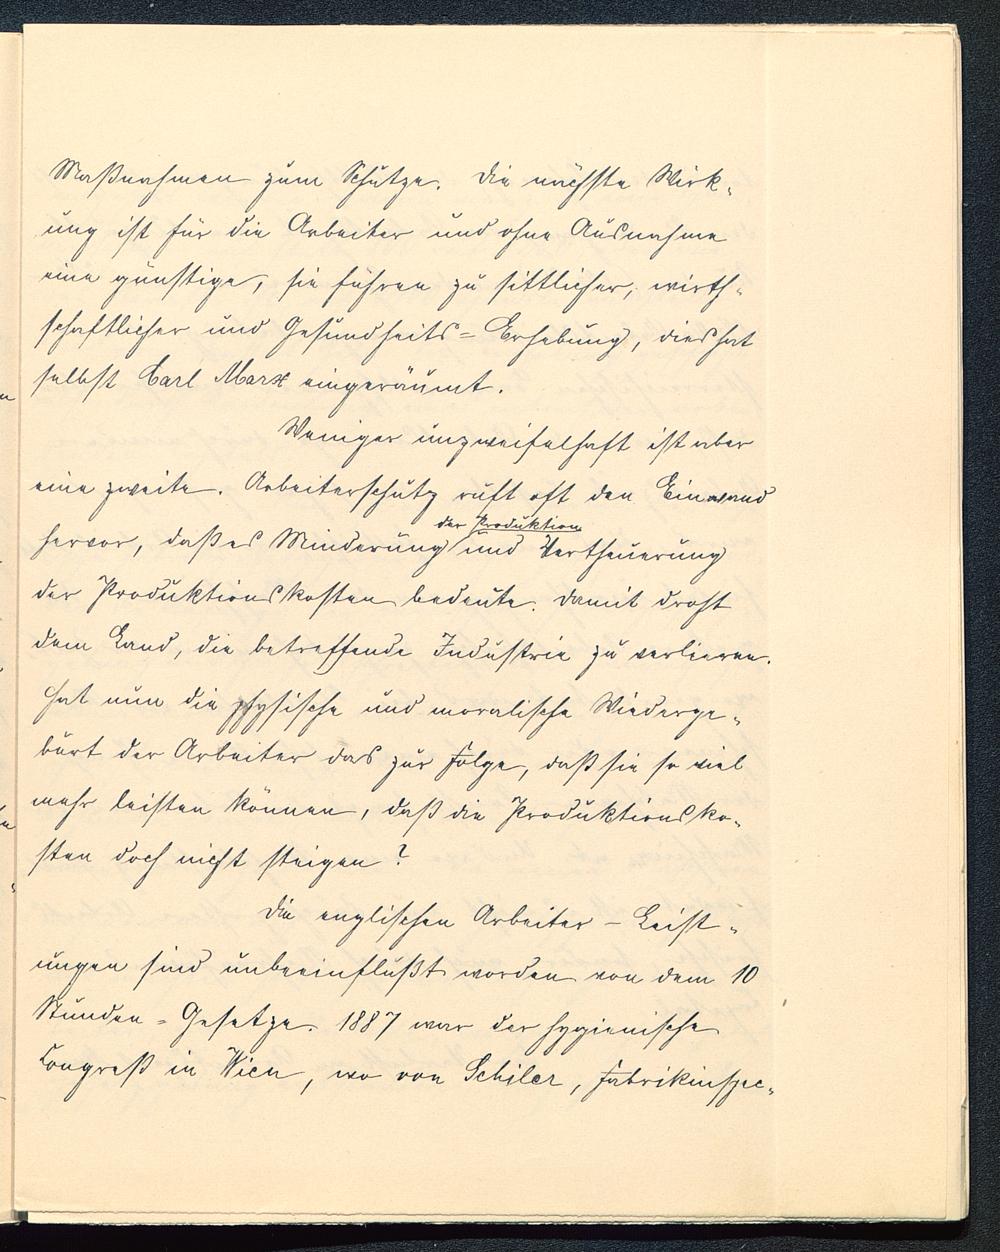 Maßnahmen zum Schutze. Die nächste Wirk-
ung ist für die Arbeiter und ohne Ausnahme
eine günstige, sie führen zu sittlicher, wirth-
schaftlicher und Gesundheits-Erhebung, dies hat
selbst Carl Marx eingeräumt.
Weniger unzweifelhaft ist aber
eine zweite. Arbeiterschutz ruft oft den Einwand
der Produktion
hervor, daß es Minderung und Vertheuerung
der Produktionskosten bedeute. Damit droht
dem Land, die betreffende Industrie zu verlieren.
Hat nun die physische und moralische Wiederge-
burt der Arbeiter das zur Folge, daß sie so viel
mehr leisten können, daß die Produktionsko-
sten doch nicht steigen?
Die englischen Arbeiter-Leist-
ungen sind unbeeinflußt worden von dem 10
Stunden-Gesetze. 1887 war der hygienische
Congreß in Wien, wo von Schiler, Fabrikinspec-